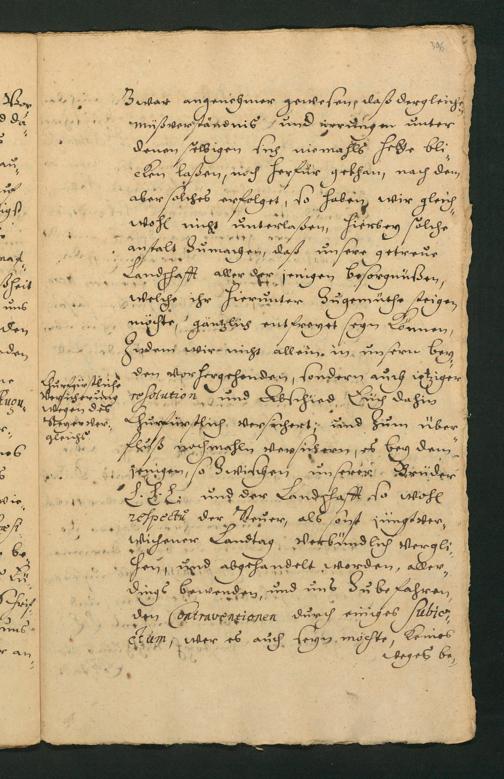 Zwar angenehmer gewesen, daß dergleich:
mißverständnis und irrungen unter
denen selbigen sich niemahls hette bli-
cken laßen, noch herfür gethan, nach dem
aber solches erfolget, so haben wir gleich-
wohl nicht unterlaßen, hierbey solche
anstalt Zumachen, daß unsere getreue
Landschafft aller der jenigen besorgnüßen,
welche ihr hierunter Zugemüthe steigen
möchte, gäntzlich entfreyet seyn können,
Indem wir nicht allein in unsern bey-
den vorhergehenden, sondern auch itziger
resolution und Abschied Euch dahin
Churfürstlich versichert, und Zum über-
fluß nochmahln versichern, es bey dem-
jenigen, so Zwischen unserer Brüder
L. L. L. und der Landschafft so wohl
respectu der Steuer, als sonst jüngst ver-
wichener Landtag verbündlich vergli-
chen, und abgehandelt worden, aller-
dings bewenden, und uns Zubefahren-
den Contraventionen durch einiges subje-
ctum, wer es auch seyn möchte, keines
weges be-
Churfürstliche
Versicherung
wegen des
Steyer ver-
gleichs